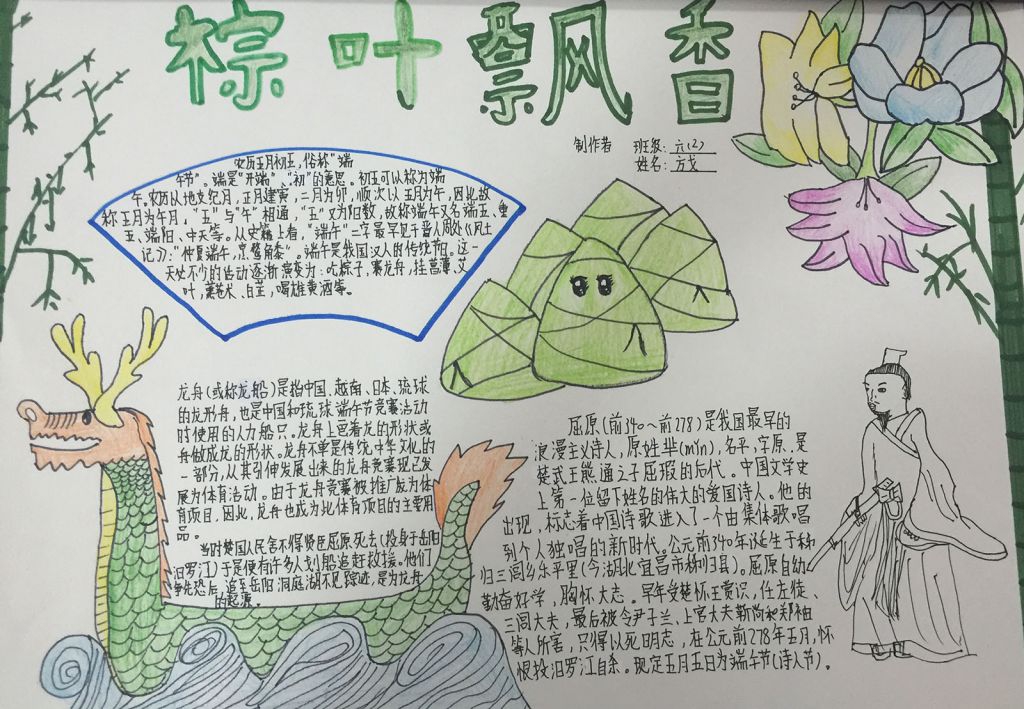 棕叶飘香
制作者 班级:六(2)
姓名:方戈
农历五月初五,俗称"端
午节"。端是"开端"、"初"的意思。初五可以称为端
午。农历以地支纪月,正月建寅,二月为卯,顺次以五月为午,因此故
称五月为午月,"五"与"午"相通,"五"又为阳数,故称端午又名端五、重
五、端阳、中天等。从史籍上看,"端午"一字最早见于晋人周处《风土
记》:"仲夏端午,烹鹜角黍"。端午是我国汉人的传统节日。这一
天必不少的活动逐渐演变为:吃粽子,赛龙舟,挂菖蒲、艾
叶,薰苍术、白芷,喝雄黄酒等。
龙舟(或称龙船)是指中国、越南、日本、琉球
的龙形舟,也是中国和琉球端午节竞赛活动
时使用的人力船只。龙舟上画着龙的形状或
舟做成龙的形状。龙舟不单是传统中华文化的
一部分,从其引伸发展出来的龙舟竞赛现已发
展为体育活动。由于龙舟竞赛被推广成为体
育项目,因此,龙舟也成为此体育项目的主要用
品。
当时楚国人民舍不得贤臣屈原死去(投身于岳阳
汨罗江)于是便有许多人划船追赶救援。他们
争先恐后,追至岳阳洞庭湖不见踪迹,是为龙舟
的起源。
屈原(前340~前278)是我国最早的
浪漫主义诗人,原姓芈(mǐn),名平,字原.是
楚武王熊通之子屈瑕的后代。中国文学史
上第一位留下姓名的伟大的爱国诗人。他的
出现,标志着中国诗歌进入了一个由集体歌唱
到个人独唱的新时代。公元前340年诞生于秭
归三闾乡乐平里(今湖北宜昌市秭归县)。屈原自幼
勤奋好学,胸怀大志。早年受楚怀王赏识,任左徒、
三闾大夫,最后被令尹子兰、上官大夫靳尚和郑袖
等人所害,只得以死明志,在公元前278年五月,怀
恨投汨罗江自杀。现定五月五日为端午节(诗人节)。